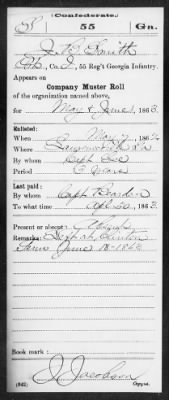 (Confederate.)
S 55 Ga.
J. T. J. Smith
Co. I, 55 Reg't Georgia Infantry.
Appears on
Company Muster Roll
of the organization named above,
for May & June, 1863.
Enlisted:
When May 7, 1862
Where Ga
By whom Capt
Period 3 years
Last paid:
By whom Capt
To what time Apl 30, 1863.
Present or absent Absent
Remarks: Left at Clinton
Tenn June 18-1863
Book mark:
J. Jacobson
(642) Copyist.